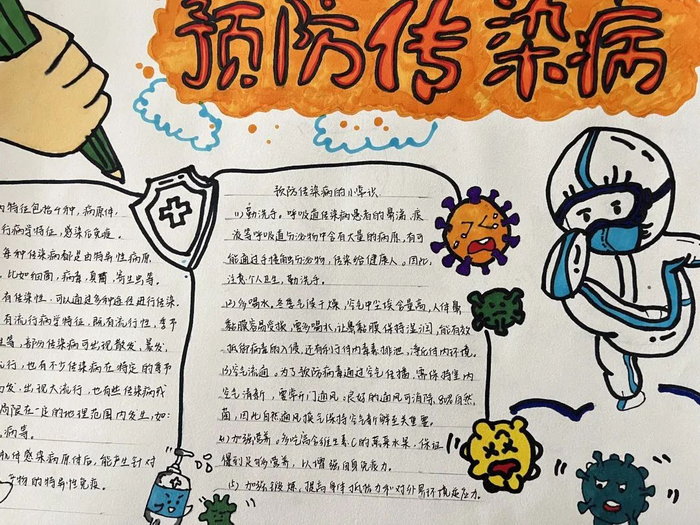 预防传染病
特征包括4个种,病原体,
行病学特征,感染后免疫。
每种传染病都是由特异性病原
比如细菌,病毒,真菌,寄生虫等。
有传染性,可以通过多种途径进行传染。
有流行病学特征,既有流行性,季节
部份传染病可出现散发,暴发,
行,也有不少传染病在特定的季节
出现大流行,也有些传染病或
局限在一定的地理范围内发生,如:
病等。
机体感染病原体后,能产生针对
物的特异性免疫。
预防传染病的小常识
(1)勤洗手。呼吸道传染病患者的鼻涕,痰
液等呼吸道分泌物中含有大量的病原,有可
能通过手接触分泌物,传染给健康人。因此,
注意个人卫生,勤洗手。
(2)多喝水,冬季气候干燥,空气中尘埃含量高,人体鼻
黏膜容易受损,需多喝水,让鼻黏膜保持湿润,能有效
抵御病毒的入侵,还有利于体内毒素排泄,净化体内环境。
(3)空气流通。为了预防病毒通过空气传播,需保持室内
空气清新,需常开门通风:良好的通风可消除80%自然
菌,因此自然通风换气保持空气新鲜至关重要。
(4)加强营养。多吃富含维生素C的蔬菜水果,保证
得到足够营养,以增强自身免疫力。
(5)加强锻炼,提高身体抵抗力和对外界环境适应力。